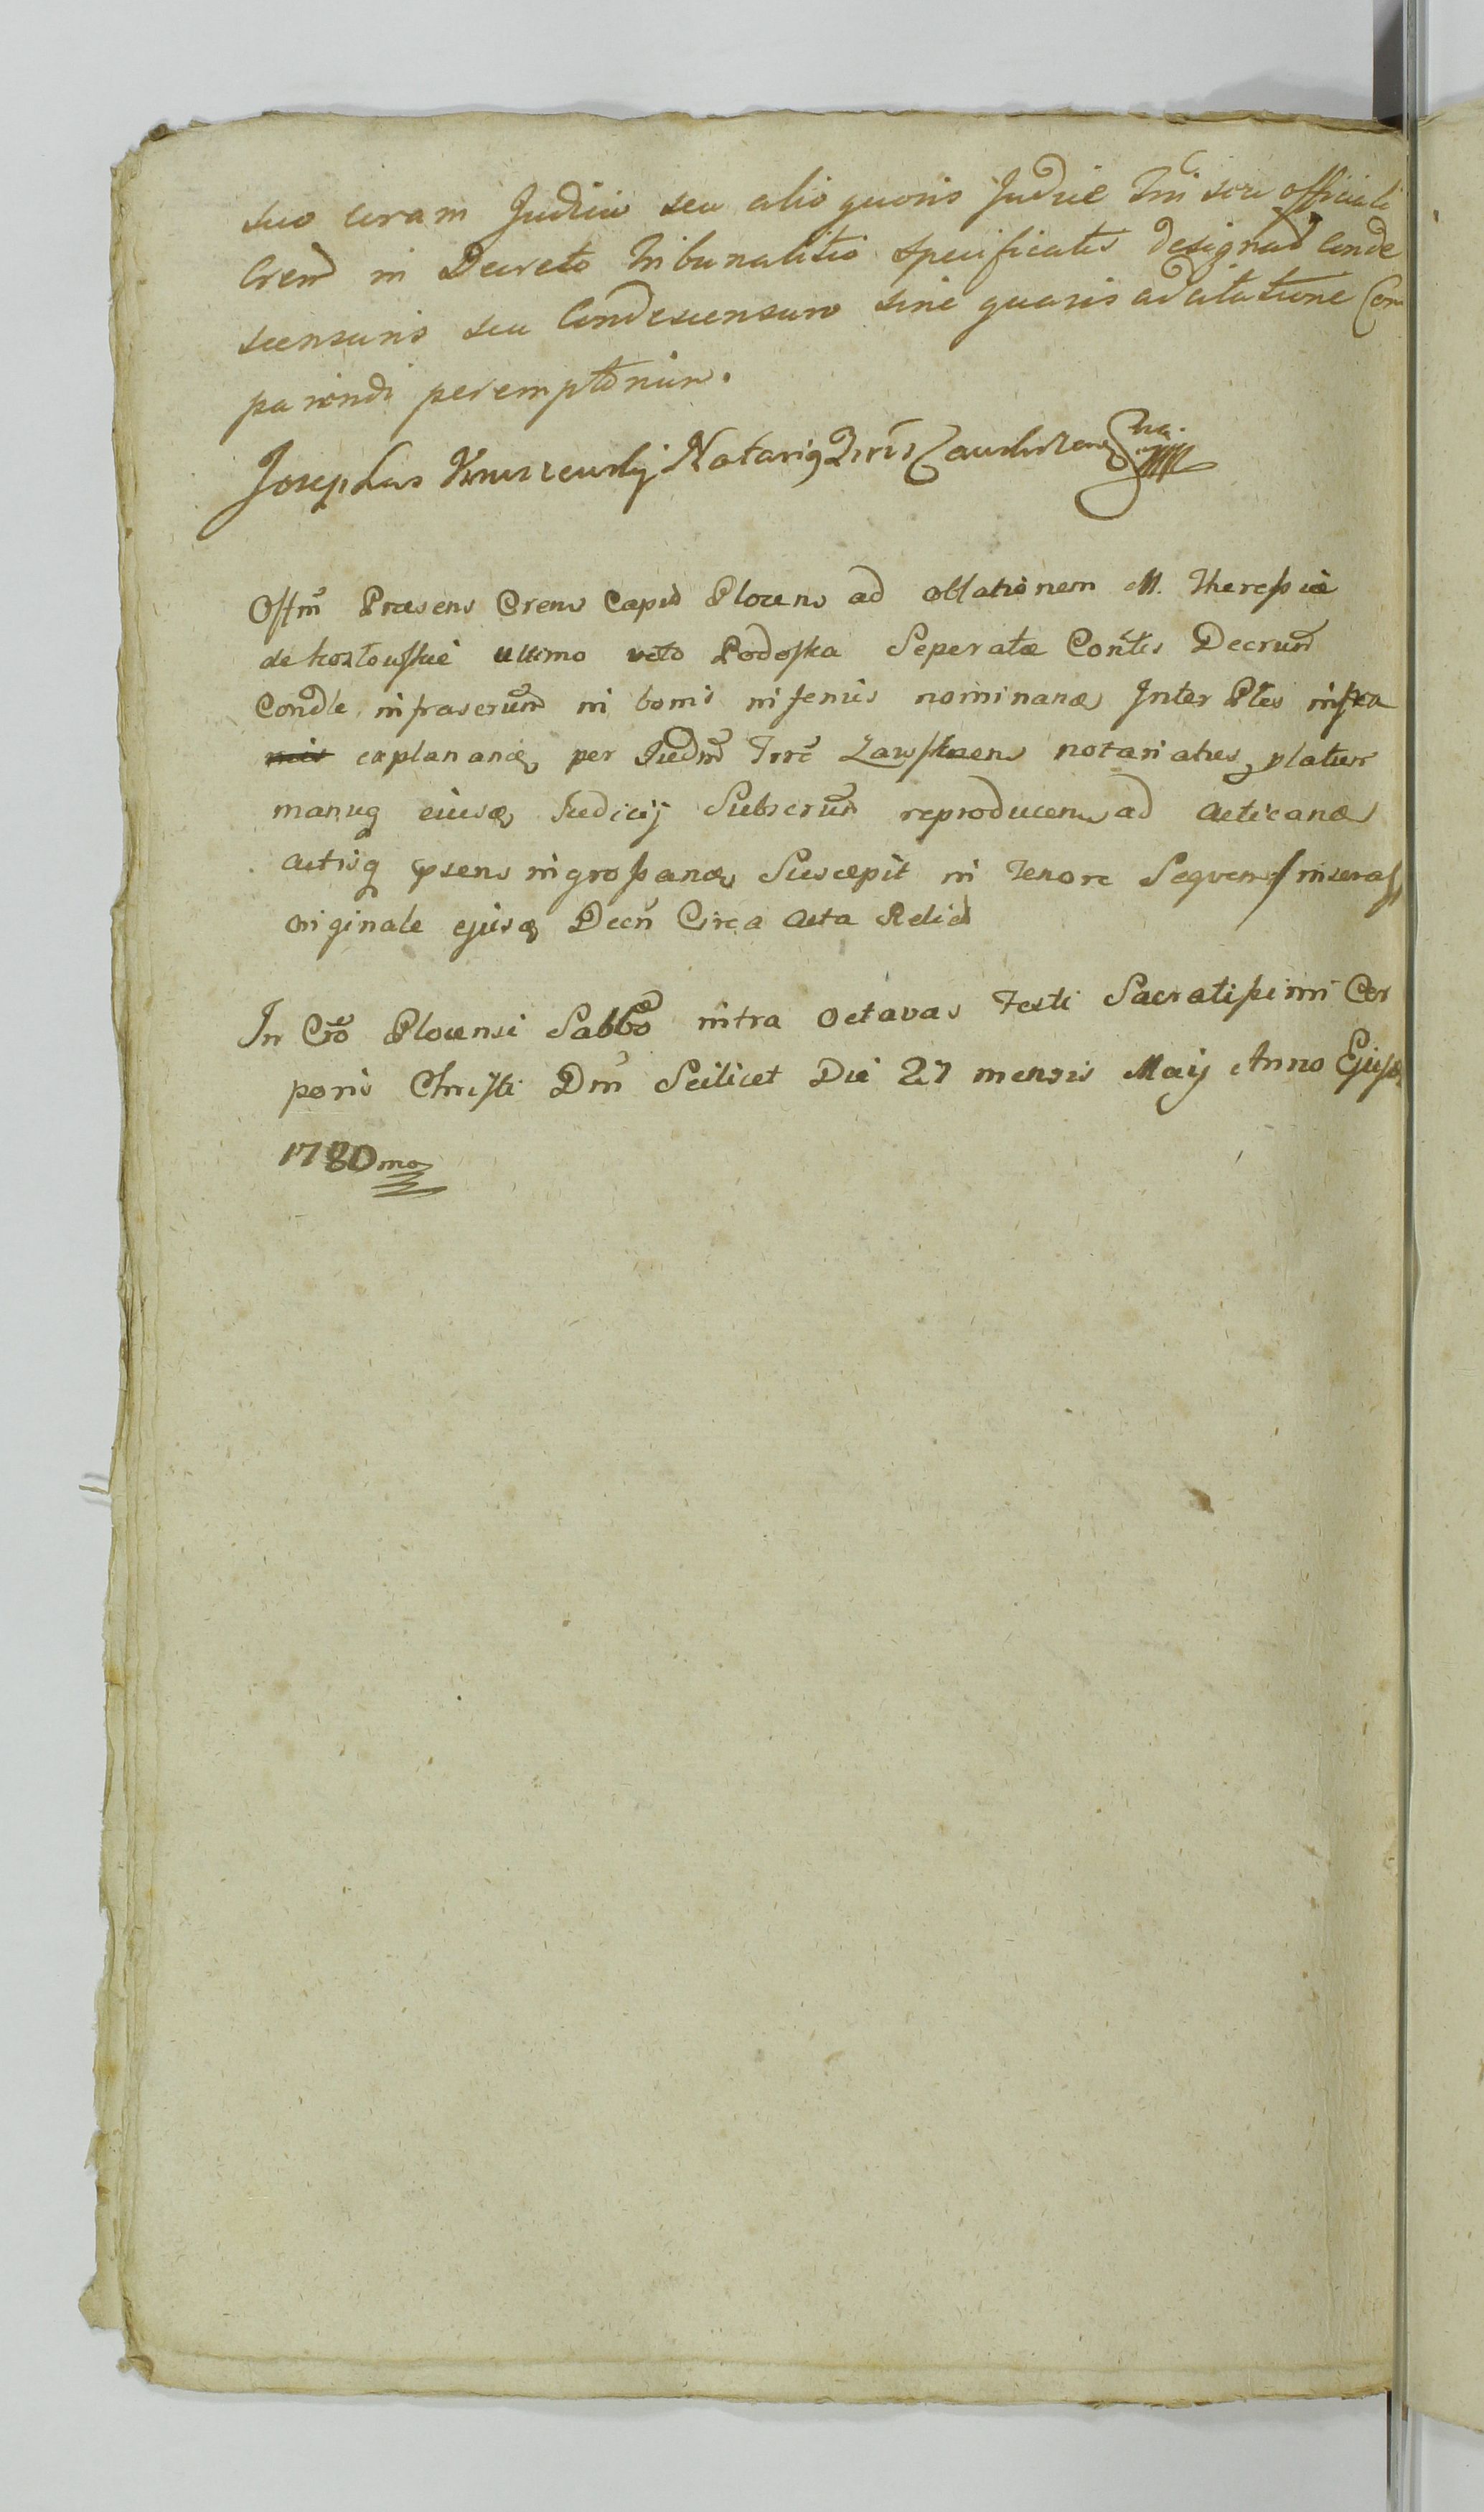 suo coram Judicio seu alio quovis Judice Trri seu officiali
Crens in Decreto Tribunalitio specificatis designat Conde
scensuris seu Condescensuro sine quavis adcitatione Com
parendi peremptorium.
Josephus Notariq Trris Zawskrzens
Offm Præsens Crens Capit Plocens ad oblationem M. Theressiæ
de Kozłowskie ultimo voto Podoska Seperatæ Contis Decrum
Condle infrascrum in bonis inferius nominanæ Inter Ptes infra
explananæ per Judm Trre Zawskrens notariatus platum
manuq eiusæ Judicij Subscrum reproducens ad acticanæ
actisq psens ingrossanæ Suscepit in tenore Sequen
originale ejusæ Decri Circa Acta Relict
In Cro Plocensi Sabbo intra octavas Festi Sacratissimi Cor
poris Christi Dni Scilicet Die 27 mensis Maij Anno Ejusæ
1780mo